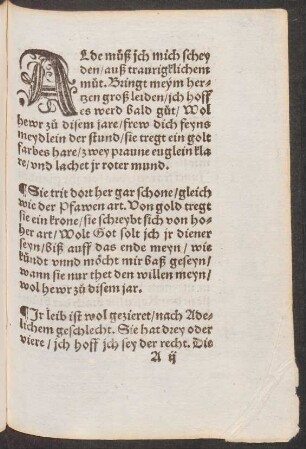 ALde můß jch mich schey
den/auß traurigklichem
můt. Bringt meym her-
tzen groß leiden/jch hoff
es werd bald gůt/ Wol
hewr zů disem jare/frew dich feyns
meydlein der stund/sie tregt ein golt
farbes hare/zwey praune euglein kla
re/vnd lachet jr roter mund.
¶Sie trit dort her gar schone/gleich
wie der Pfawen art. Von gold tregt
sie ein krone/sie schreybt sich von ho-
her art/Wolt Got solt jch jr diener
seyn/biß auff das ende meyn/wie
kündt vnnd möcht mir baß geseyn/
wann sie nur thet den willen meyn/
wol hewr zů disem jar.
¶Jr leib ist wol gezieret/nach Ade-
lichem geschlecht. Sie hat drey oder
viere/jch hoff jch sey der recht. Dis
A ij